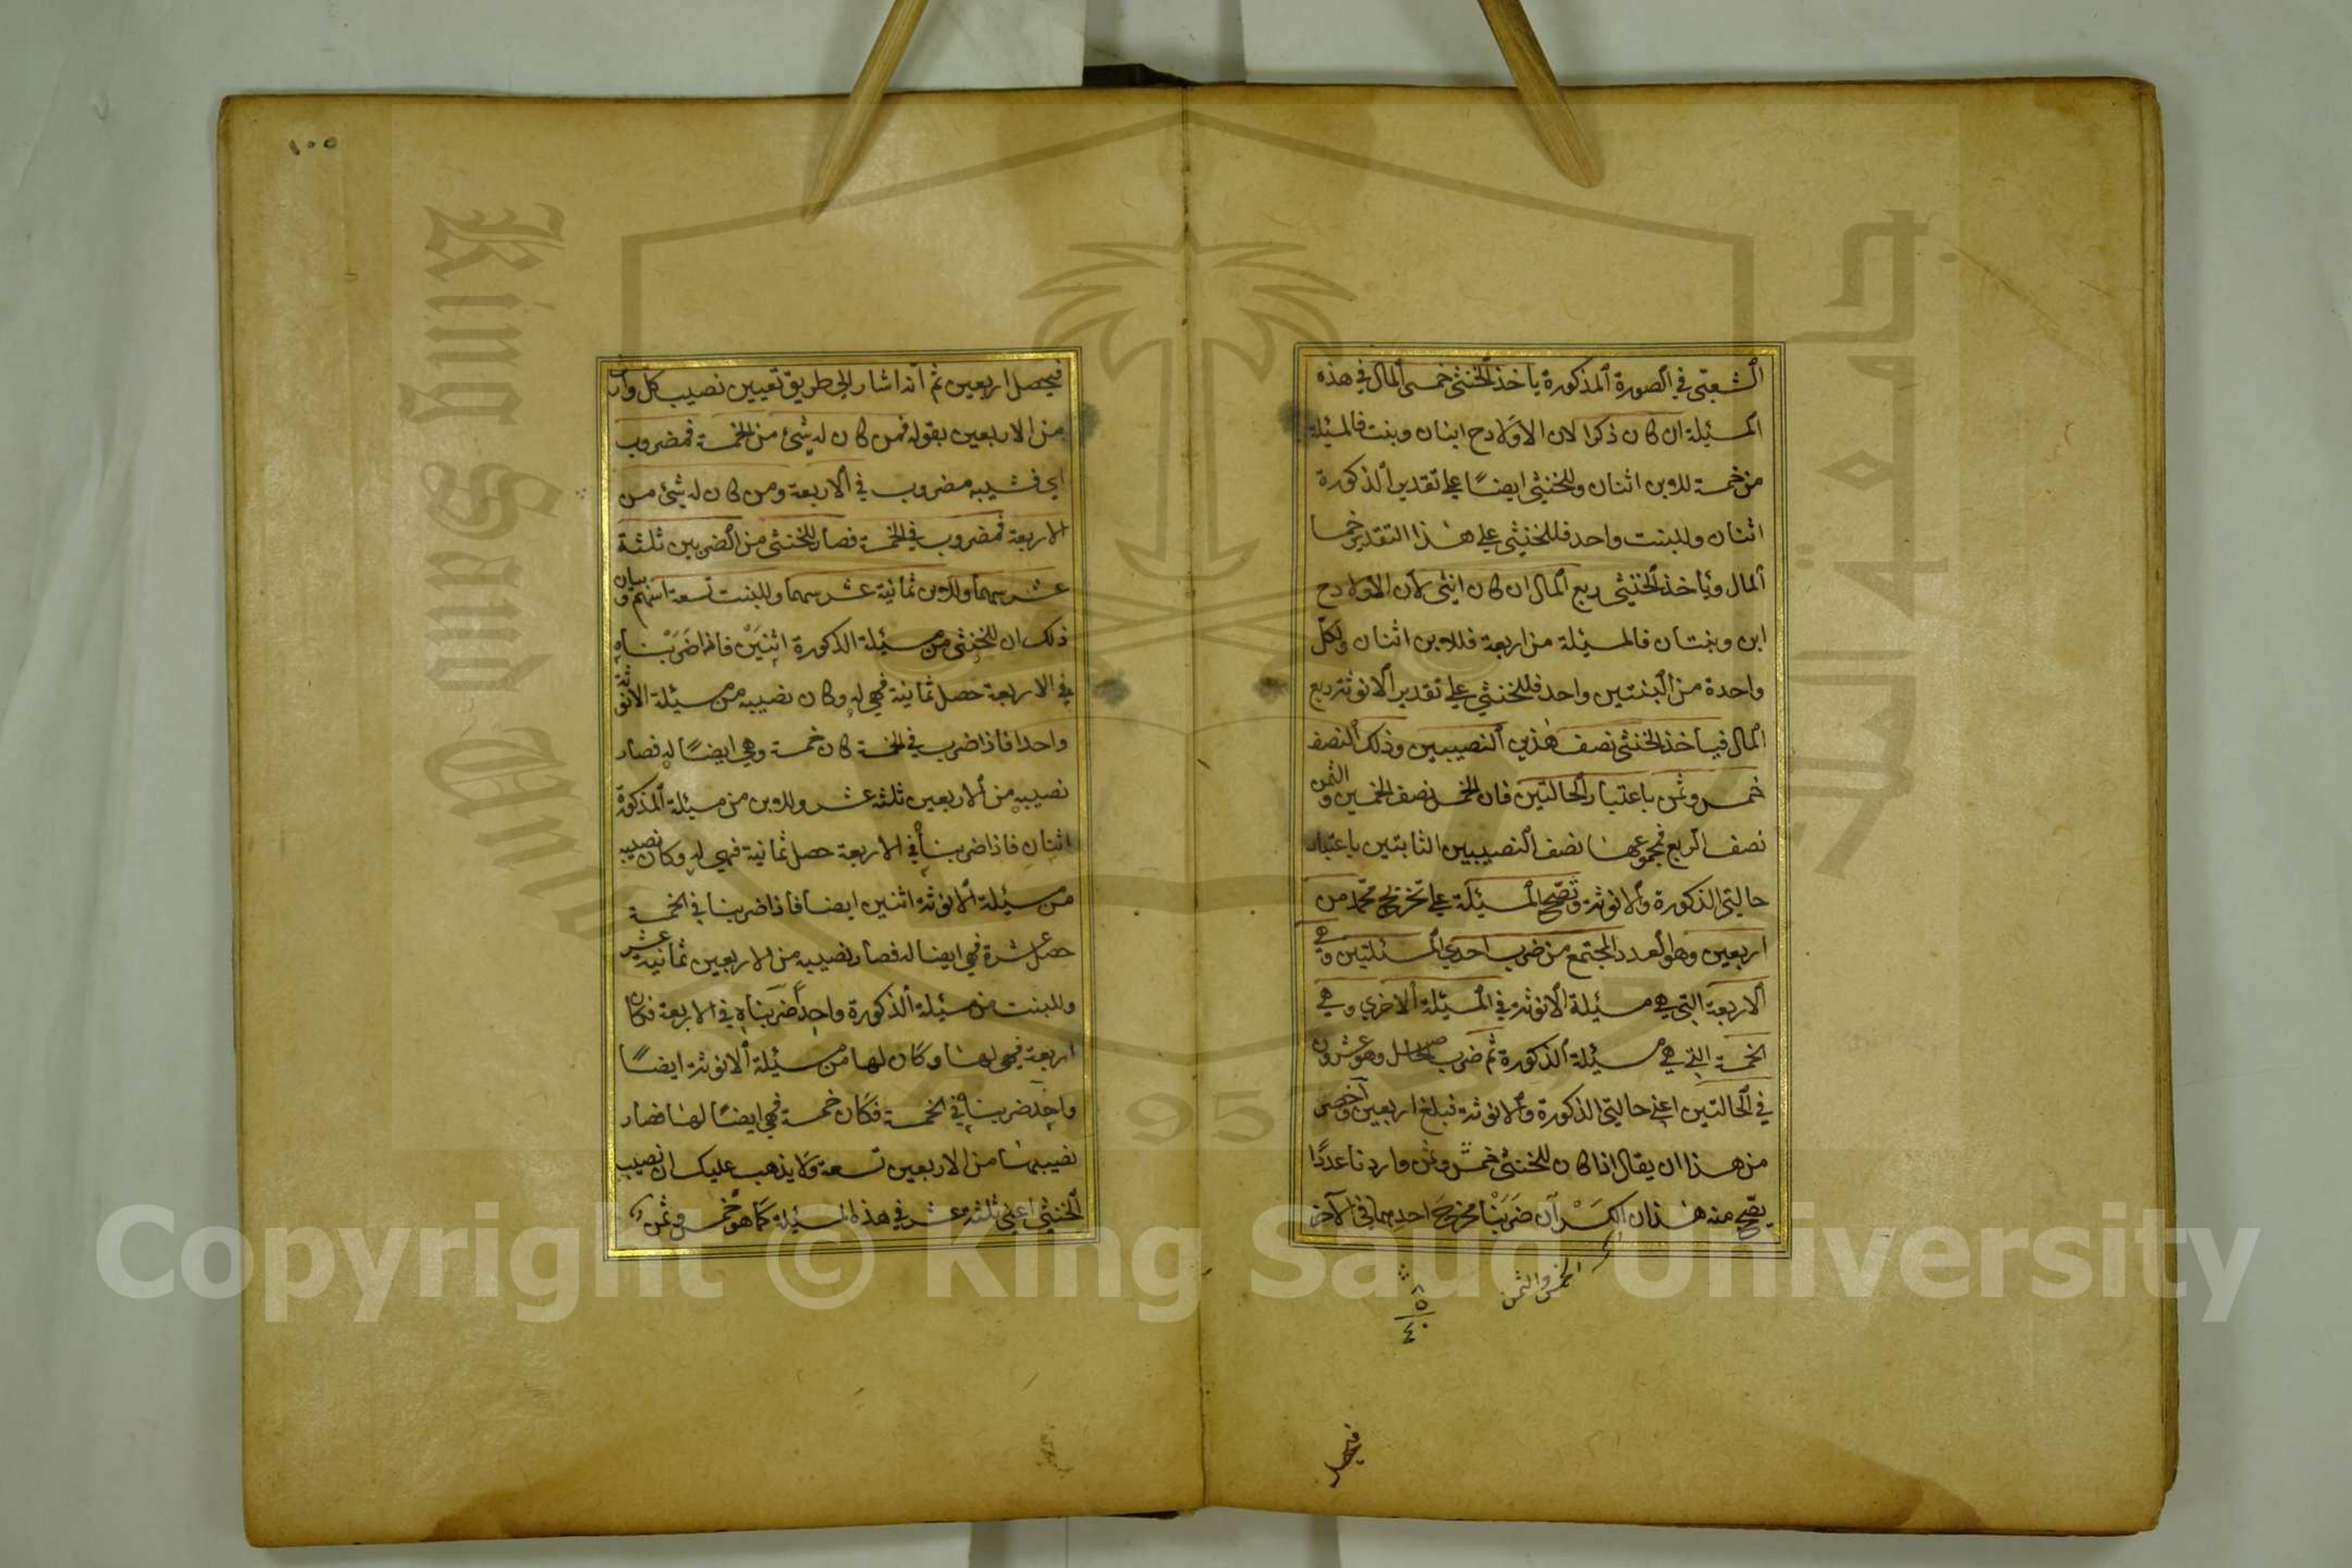 الشعبي في الصورة المذكورة يأخذ الخنثى خمسى المال في هذه
المسئيلة ان كان ذكرا لان الاولاد ح ابنان وبنت فالمسئيلة
من خمسة للابن اثنان وللخنثى ايضًا على تقدير الذكورة
اثنان وللبنت واحد فللخنثى على هذا التقدير خمسا
المال ويأخذ الخنثى ربع المال ان كان انثى لان الاولاد ح
ابن وبنتان فالمسئيلة من اربعة فللابن اثنان ولكل
واحدة من البنتين واحد فللخنثى على تقدير الانوثة ربع
المال فيأخذ الخنثى نصف هذين النصيبين وذلك النصف
خمس وثمن باعتبار الحالتين فان الخمس نصف الخمسين والثمن
نصف الربع فمجموعهما نصف النصيبين الثابتين باعتبار
حالتي الذكورة والانوثة وتصح المسئيلة على تخريج محمد من
اربعين وهو العدد المجتمع من ضرب احدى المسئلتين وهي
الاربعة التي هي مسئيلة الانوثة في المسئيلة الاخرى وهي
الخمسة التي هي مسئيلة الذكورة ثم ضرب الحاصل وهو عشرون
في الحالتين اعني حالتي الذكورة والانوثة تبلغ اربعين واخصر
من هذا ان يقال اذا كان للخنثى خمس وثمن واردنا عددًا
يصح منه هذان الكسرآن ضربنا مخرج احدهما في الآخر
الخمس والثمن
٨
٥
٤٠
فيحصل
١٠٥
فيحصل اربعين ثم انه اشار الى طريق تعيين نصيب كل واحد
من الاربعين بقوله فمن كان له شئ من الخمسة فمضروب
اي فنصيبه مضروب في الاربعة ومن كان له شئ من
الاربعة فمضروب في الخمسة فصار للخنثى من الضربين ثلثة
عشر سهما وللابن ثمانية عشر سهما وللبنت تسعة اسهم وبيان
ذلك ان للخنثى من مسئيلة الذكورة اثنين فاذا ضربناه
في الاربعة حصل ثمانية فهي له وكان نصيبه من مسئيلة الانوثة
واحدا فاذا ضرب في الخمسة كان خمسة وهي ايضًا له فصار
نصيبه من الاربعين ثلثة عشر وللابن من مسئيلة المذكورة
اثنان فاذا ضربنا في الاربعة حصل ثمانية فهي له وكان نصيبه
من مسئيلة الانوثة اثنين ايضا فاذا ضربنا في الخمسة
حصل عشرة فهي ايضا له فصار نصيبه من الاربعين ثمانية عشر
وللبنت من مسئيلة الذكورة واحدًا ضربناه في الاربعة فكان
اربعة فهي لها وكان لها من مسئيلة الانوثة ايضًا
واحد ضربنا في الخمسة فكان خمسة فهي ايضًا لها فصار
نصيبها من الاربعين تسعة ولا يذهب عليك ان نصيب
الخنثى اعني ثلثة عشر في هذه المسئيلة كما هو خمس وثمن
Copyright © King Saud University
King Saud University
جامعة الملك سعود
1957